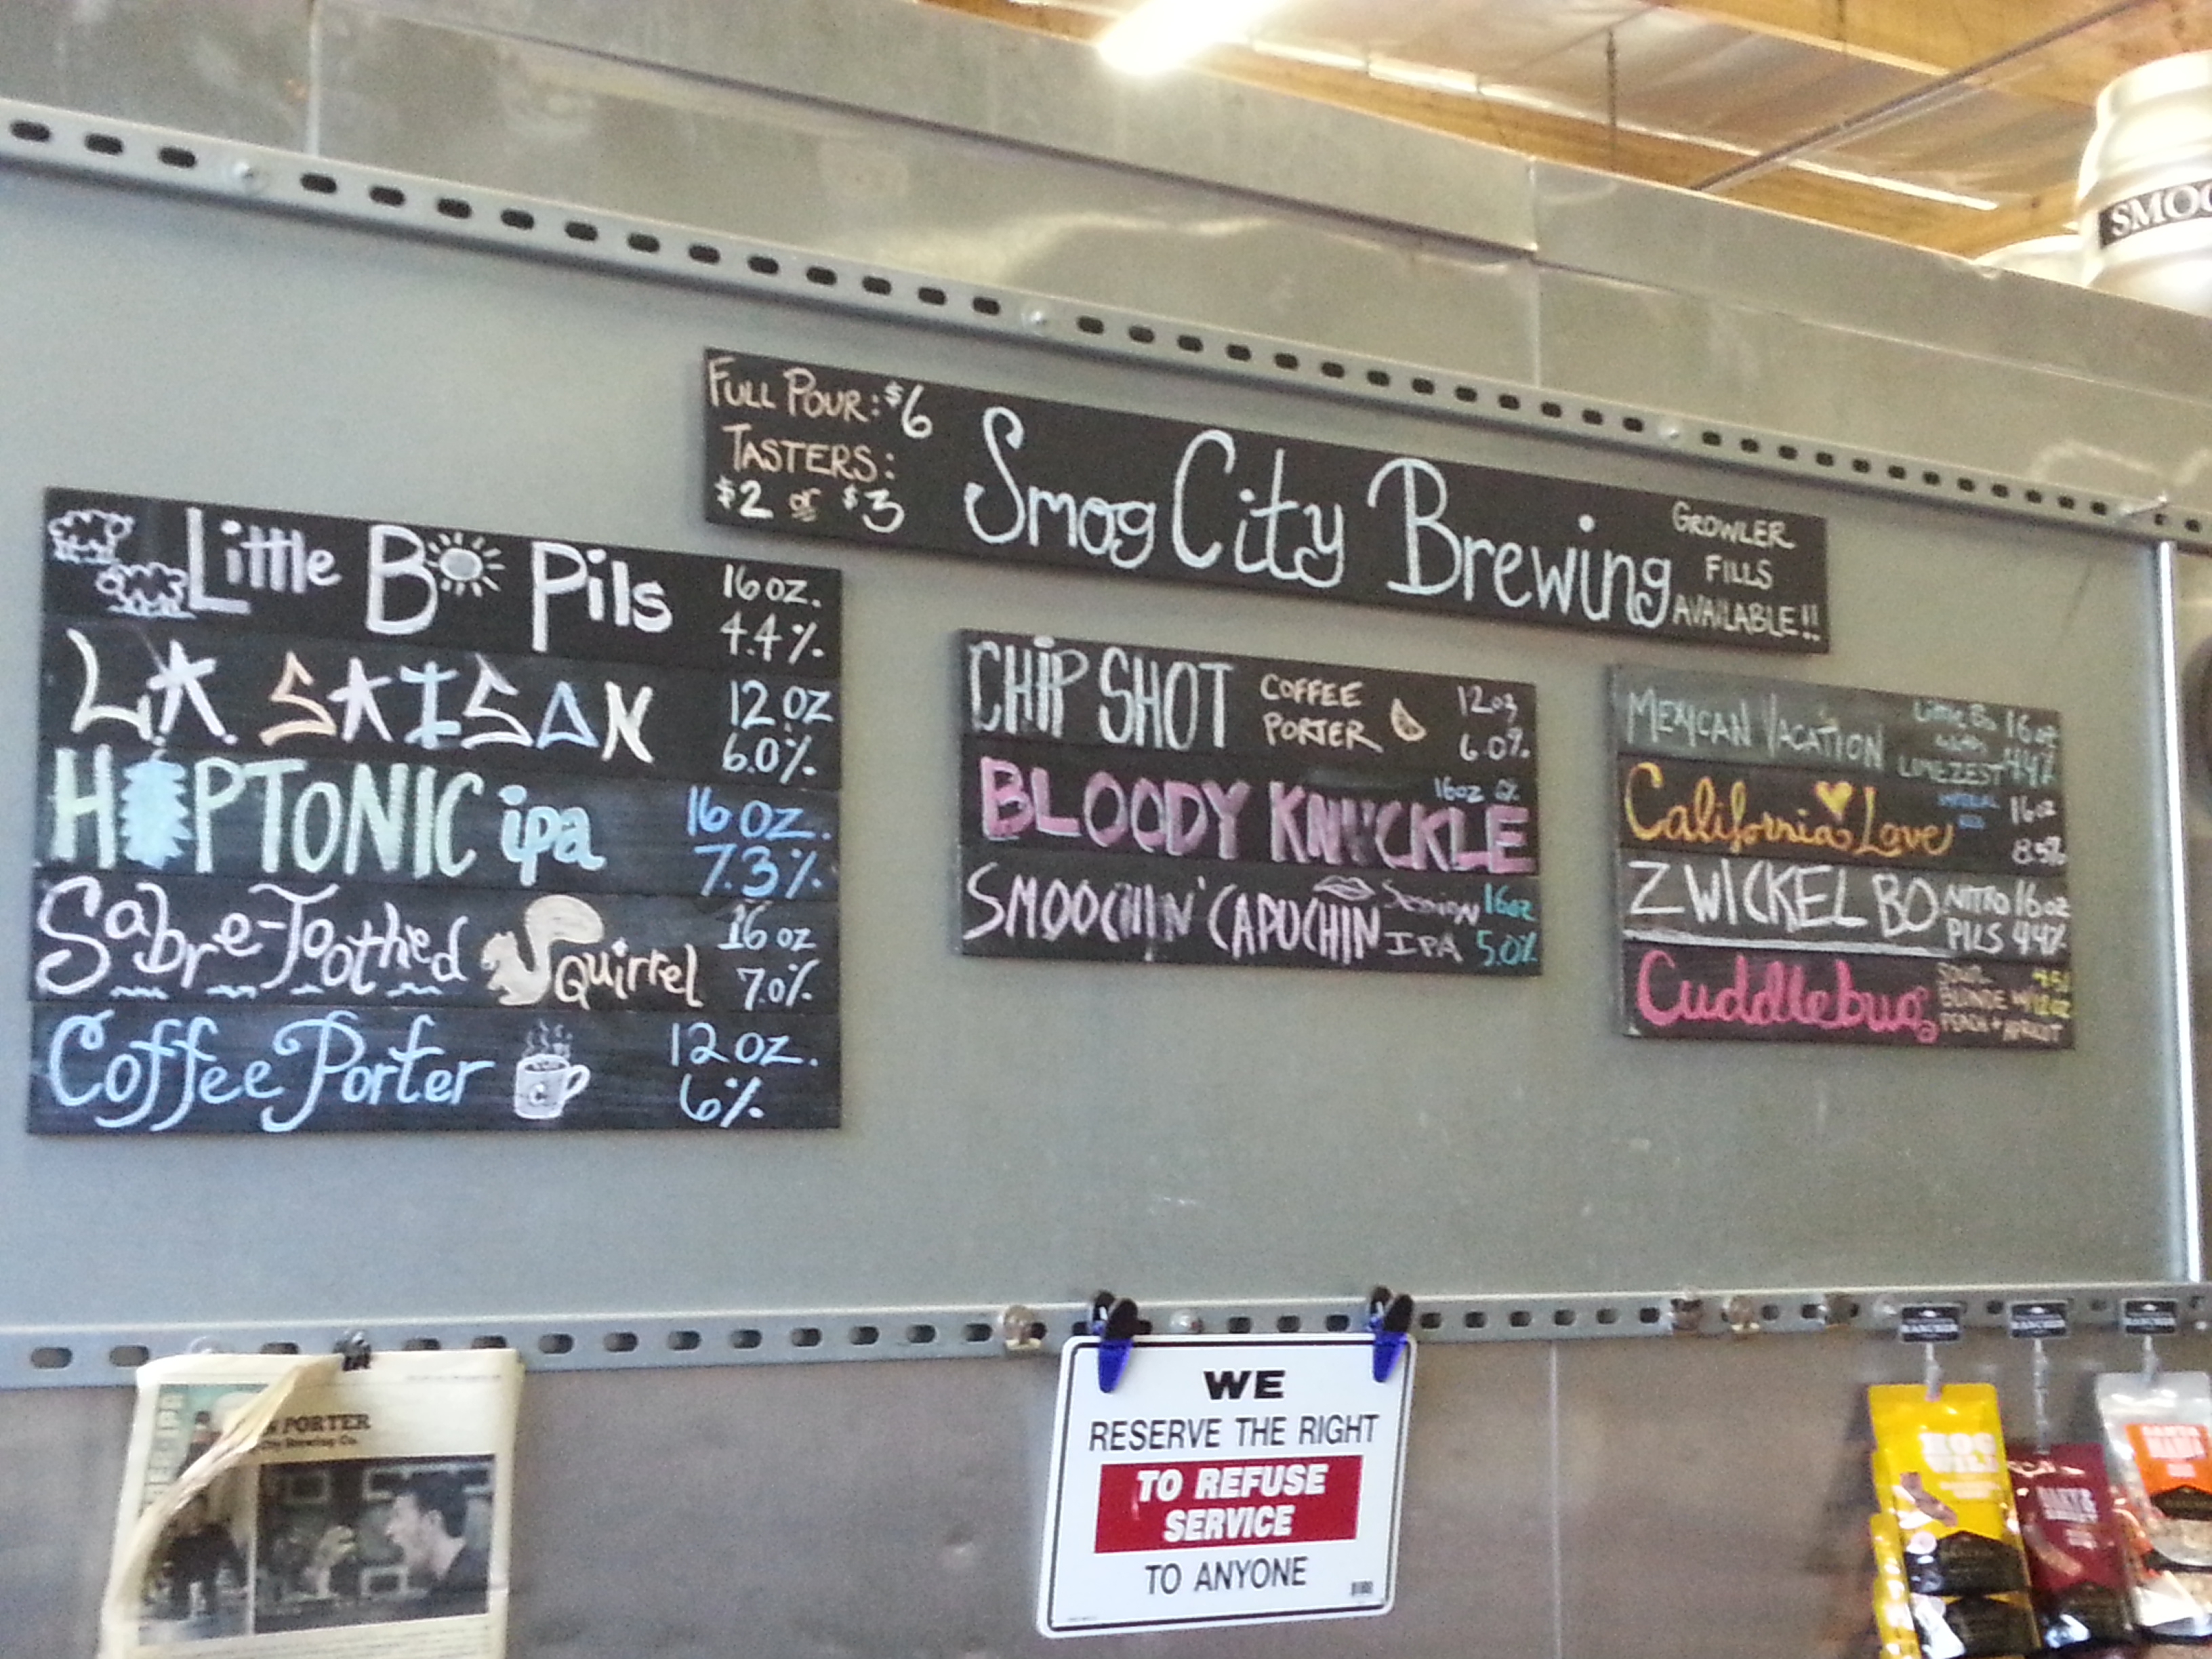 SMOG
FULL POUR: $6
TASTERS:
$2 or $3
Smog City Brewing
GROWLER
FILLS
AVAILABLE!!
Little Bo Pils 16 oz.
4.4%
LA SAISON 12 OZ
6.0%
HOPTONIC ipa 16 OZ.
7.3%
Sabre-Toothed Squirrel 16 oz
7.0%
Coffee Porter 12 OZ.
6%
CHIP SHOT COFFEE PORTER 12oz
6.0%
BLOODY KNUCKLE 16oz 6%
SMOOCHIN' CAPUCHIN Session IPA 16oz
5.0%
MEXICAN VACATION Little Bo with LIMEZEST 16 oz
4.4%
California Love IMPERIAL RED 16oz
8.5%
ZWICKEL BO NITRO PILS 16oz
4.4%
Cuddlebug SOUR BLONDE W/ PEACH + APRICOT 12oz
PORTER
City Brewing Co.
WE
RESERVE THE RIGHT
TO REFUSE
SERVICE
TO ANYONE